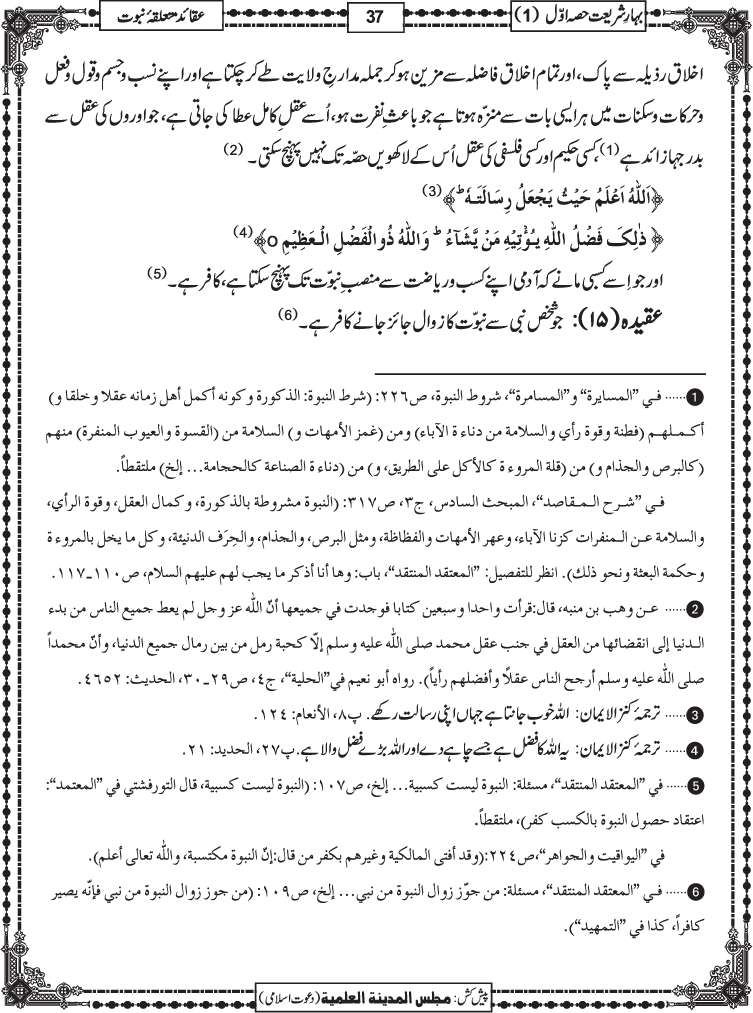 بہارِ شریعت حصہ اوّل (1)
37
عقائد متعلقۂ نبوت
اخلاق رذیلہ سے پاک، اور تمام اخلاق فاضلہ سے مزین ہو کر جملہ مدارجِ ولایت طے کر چکتا ہے اور اپنے نسب و جسم و قول و فعل
و حرکات و سکنات میں ہر ایسی بات سے منزّہ ہوتا ہے جو باعثِ نفرت ہو، اُسے عقلِ کامل عطا کی جاتی ہے، جو اوروں کی عقل سے
بدرجہا زائد ہے (1)، کسی حکیم اور کسی فلسفی کی عقل اُس کے لاکھویں حصّہ تک نہیں پہنچ سکتی۔ (2)
﴿اَللّٰهُ اَعْلَمُ حَيْثُ يَجْعَلُ رِسَالَتَهٗ ؕ ﴾(3)
﴿ ذٰلِكَ فَضْلُ اللّٰهِ يُؤْتِيْهِ مَنْ يَّشَآءُ ؕ وَاللّٰهُ ذُو الْفَضْلِ الْعَظِيْمِ o﴾(4)
اور جو اِسے کسبی مانے کہ آدمی اپنے کسب و ریاضت سے منصبِ نبوّت تک پہنچ سکتا ہے، کافر ہے۔ (5)
عقیدہ (۱۵): جو شخص نبی سے نبوّت کا زوال جائز جانے کافر ہے۔ (6)
1 ...... في ”المسايرة“ و”المسامرة“، شروط النبوة، ص٢٢٦: (شرط النبوة: الذكورة و كونه أكمل أهل زمانه عقلا و خلقا و)
أكملهم (فطنة وقوة رأي والسلامة من دناءة الآباء) ومن (غمز الأمهات و) السلامة من (القسوة والعيوب المنفرة) منهم
(كالبرص والجذام و) من (قلة المروءة كالأكل على الطريق، و) من (دناءة الصناعة كالحجامة... إلخ) ملتقطاً.
في ”شرح المقاصد“، المبحث السادس، ج٣، ص٣١٧: (النبوة مشروطة بالذكورة، وكمال العقل، وقوة الرأي،
والسلامة عن المنفرات كزنا الآباء، وعهر الأمهات والفظاظة، ومثل البرص، والجذام، والحِرَف الدنيئة، وكل ما يخل بالمروءة
وحكمة البعثة ونحو ذلك). انظر للتفصيل: ”المعتقد المنتقد“، باب: وها أنا أذكر ما يجب لهم عليهم السلام، ص١١٠ـ١١٧.
2 ...... عن وهب بن منبه، قال:قرأت واحدا وسبعين كتابا فوجدت في جميعها أنّ الله عز وجل لم يعط جميع الناس من بدء
الدنيا إلى انقضائها من العقل في جنب عقل محمد صلى الله عليه وسلم إلّا كحبة رمل من بين رمال جميع الدنيا، وأنّ محمداً
صلى الله عليه وسلم أرجح الناس عقلاً وأفضلهم رأياً). رواه أبو نعيم في”الحلية“، ج٤، ص٢٩ـ٣٠، الحديث: ٤٦٥٢.
3 ...... ترجمۂ کنز الایمان: اللہ خوب جانتا ہے جہاں اپنی رسالت رکھے. پ۸، الأنعام: ١٢٤.
4 ...... ترجمۂ کنز الایمان: یہ اللہ کا فضل ہے جسے چاہے دے اور اللہ بڑے فضل والا ہے. پ٢٧، الحديد: ٢١.
5 ...... في ”المعتقد المنتقد“، مسئلة: النبوة ليست كسبية... إلخ، ص١٠٧: (النبوة ليست كسبية، قال التورفشتي في ”المعتمد“:
اعتقاد حصول النبوة بالكسب كفر)، ملتقطاً.
في ”اليواقيت والجواهر“،ص٢٢٤:(وقد أفتى المالكية وغيرهم بكفر من قال:إنّ النبوة مكتسبة، والله تعالى أعلم).
6 ...... في ”المعتقد المنتقد“، مسئلة: من جوّز زوال النبوة من نبي... إلخ، ص١٠٩: (من جوز زوال النبوة من نبي فإنّه يصير
كافراً، كذا في ”التمهيد“).
پیش کش: مجلس المدينة العلمية (دعوت اسلامی)